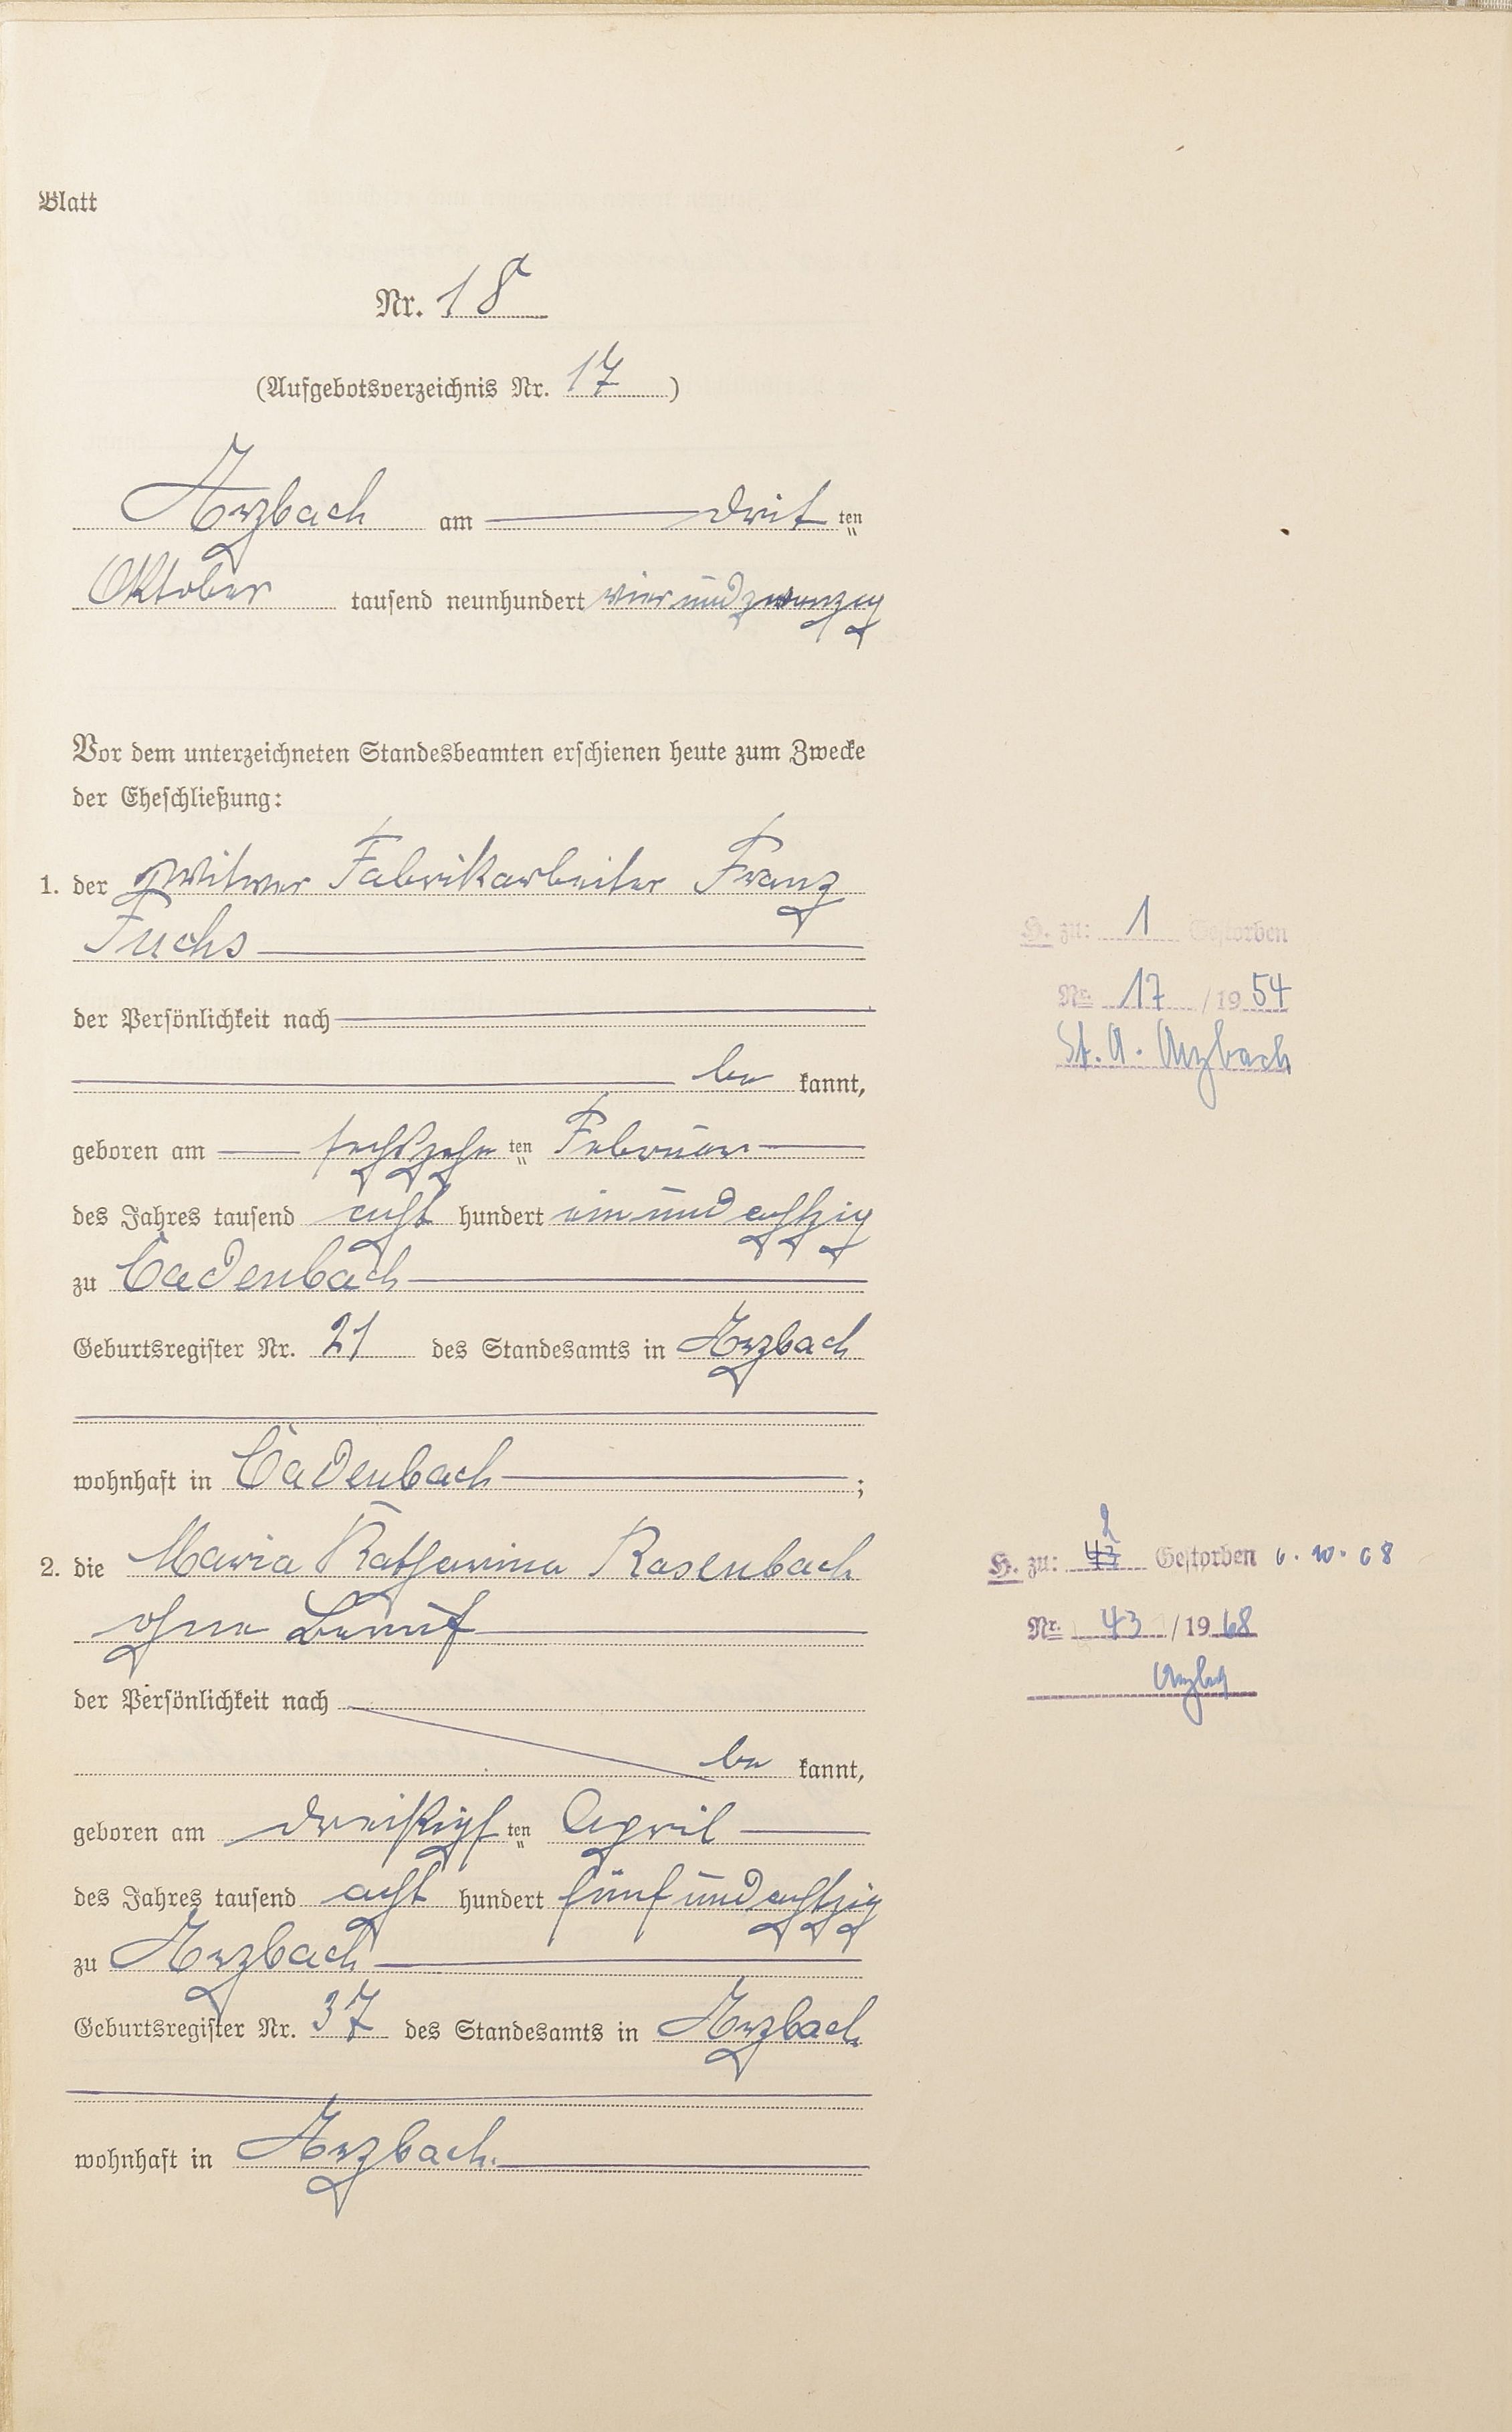 Blatt
Nr. 18
(Aufgebotsverzeichnis Nr. 17)
Arzbach am dritten
Oktober tausend neunhundert vier und zwanzig
Vor dem unterzeichneten Standesbeamten erschienen heute zum Zwecke
der Eheschließung:
1. der Witwer Fabrikarbeiter Franz
Fuchs
der Persönlichkeit nach
be kannt,
geboren am sechszehnten Februar
des Jahres tausend acht hundert ein und achtzig
zu Cadenbach
Geburtsregister Nr. 21 des Standesamts in Arzbach
wohnhaft in Cadenbach;
2. die Maria Katharina Rasenbach
ohne Beruf
der Persönlichkeit nach
be kannt,
geboren am dreißigsten April
des Jahres tausend acht hundert fünf und achtzig
zu Arzbach
Geburtsregister Nr. 37 des Standesamts in Arzbach
wohnhaft in Arzbach.
H. zu: 1 Gestorben
Nr. 17 / 1954
St. A. Arzbach
H. zu: 2 Gestorben 6.10.68
Nr. 43 / 1968
Arzbach